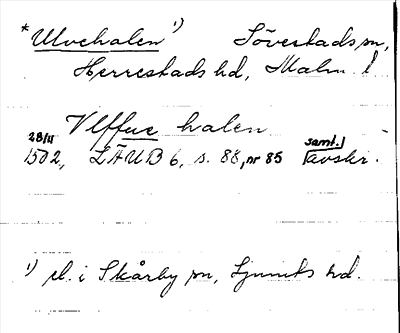 *Ulvehalen 1) Sövestads sn,
Herrestads hd, Malm. l
Vlffue halen
28/11 samt.
1502, LÄUB 6, s. 88, nr 85 avskr.
1) el. i Skårby sn, Ljunits hd.